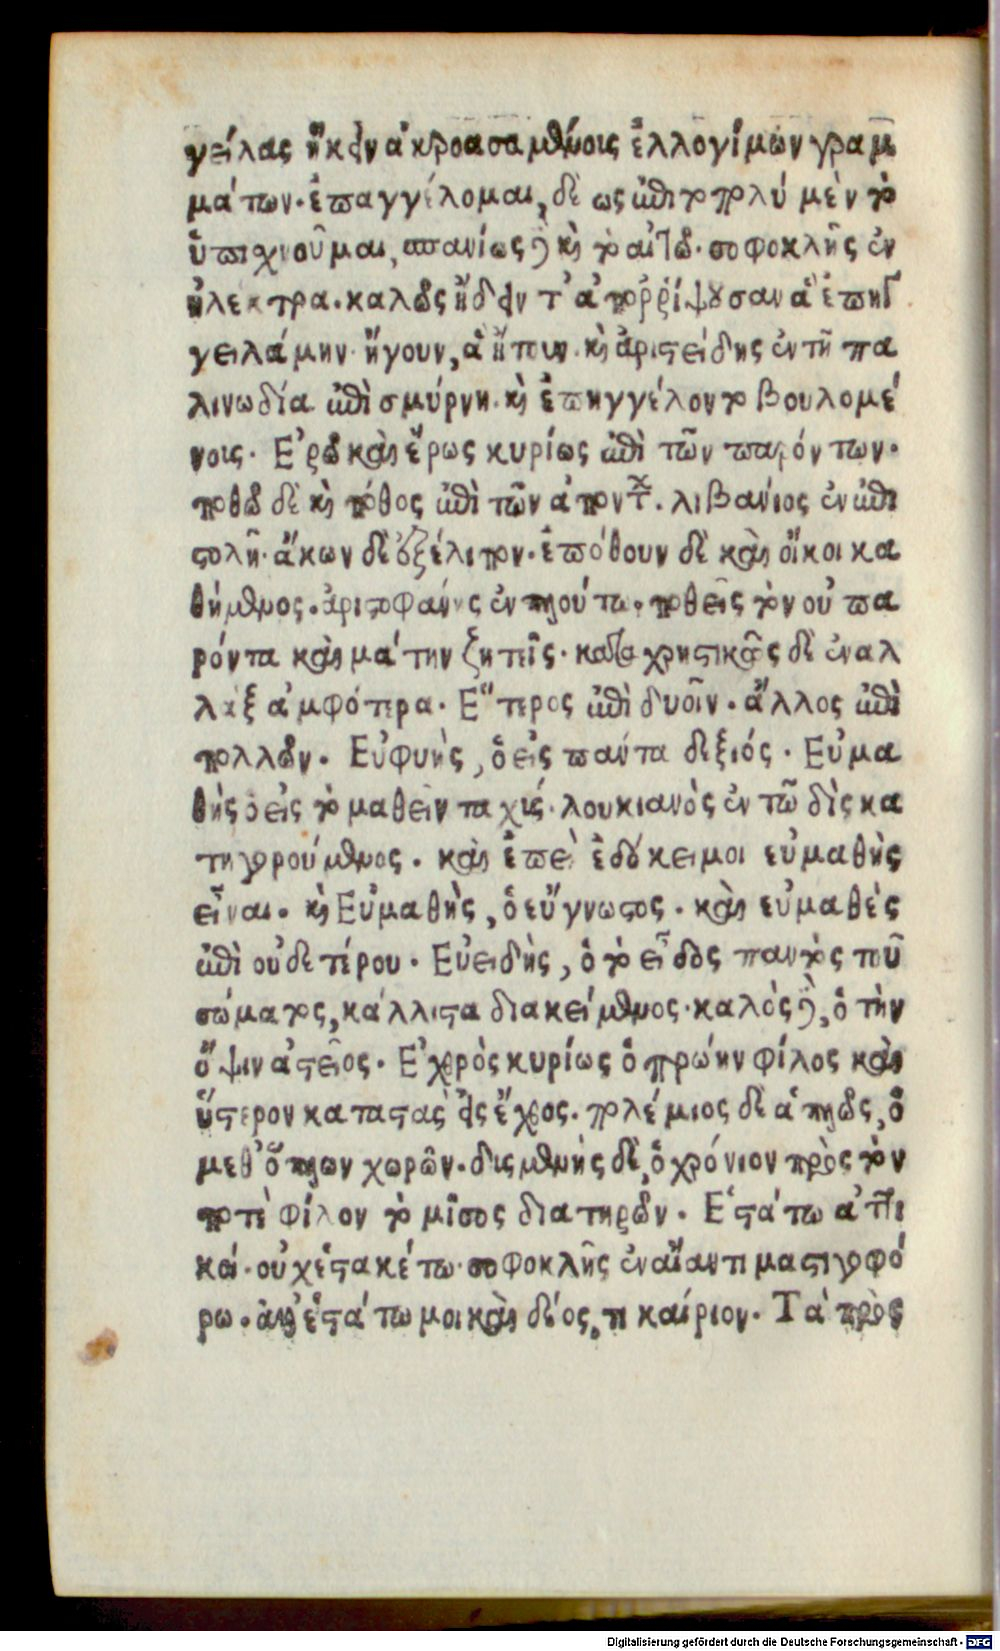 γείλας ἥκειν ἀκροασαμένοις ἐλλογίμων γραμ
μάτων. ἐπαγγέλομαι, δὲ ὡς ἐπιτοπολύ μὲν τὸ
ὑπιχνοῦμαι, σπανίως δὲ καὶ τὸ αἰτῶ. σοφοκλῆς ἐν
ἠλέκτρα. καλῶς ἤδειν τ' ἀπορρίψουσαν ἃ ἐπηγ
γειλάμην. ἤγουν, ἃ ἤτουν. καὶ ἀριστείδης ἐν τῆ πα
λινωδία ἐπὶ σμύρνη. καὶ ἐπηγγέλοντο βουλομέ
νοις. Ἐρῶ καὶ ἔρως κυρίως ἐπὶ τῶν παρόντων.
ποθῶ δὲ καὶ πόθος ἐπὶ τῶν ἀπόντ. λιβανίος ἐν ἐπι
στολῆ. ἄκων δὲ ἐξέλιπον. ἐπόθουν δὲ καὶ οἴκοι κα
θήμενος. ἀριστοφάνης ἐν πλούτω. ποθεῖς τὸν οὐ πα
ρόντα καὶ μάτην ζητεῖς. καταχρηστικῶς δὲ ἐναλ
λὰξ ἀμφότερα. Ἕτερος ἐπὶ δυοῖν. ἄλλος ἐπὶ
πολλῶν. Εὐφυὴς, ὁ εἰς πάντα δεξιός. Εὐμα
θὴς ὁ εἰς τὸ μαθεῖν ταχύς. λουκιανὸς ἐν τῶ δὶς κα
τηγορούμενος. καὶ ἐπεὶ ἐδόκει μοι εὐμαθὴς
εἶναι. καὶ Εὐμαθὴς, ὁ εὔγνωστος. καὶ εὐμαθὲς
ἐπὶ οὐδετέρου. Εὐειδὴς, ὁ τὸ εἶδος παντὸς τοῦ
σώματος, κάλλιστα διακείμενος. καλὸς δὲ, ὁ τὴν
ὄψιν ἀστεῖος. Ἐχθρὸς κυρίως ὁ πρώην φίλος καὶ
ὕστερον καταστὰς εἰς ἔχθος. πολέμιος δὲ ἁπλῶς, ὁ
μεθ' ὅπλων χωρῶν. δυσμενὴς δὲ, ὁ χρόνιον πρὸς τὸν
ποτὲ φίλον τὸ μῖσος διατηρῶν. Ἑστάτω ἀττι
κά. οὐχ ἑστακέτω. σοφοκλῆς ἐν αἴαντι μαστιγοφό
ρω. ἀλλ' ἑστάτω μοι καὶ δέος, τι καίριον. Τὰ πρὸς
Digitalisierung gefördert durch die Deutsche Forschungsgemeinschaft - DFG